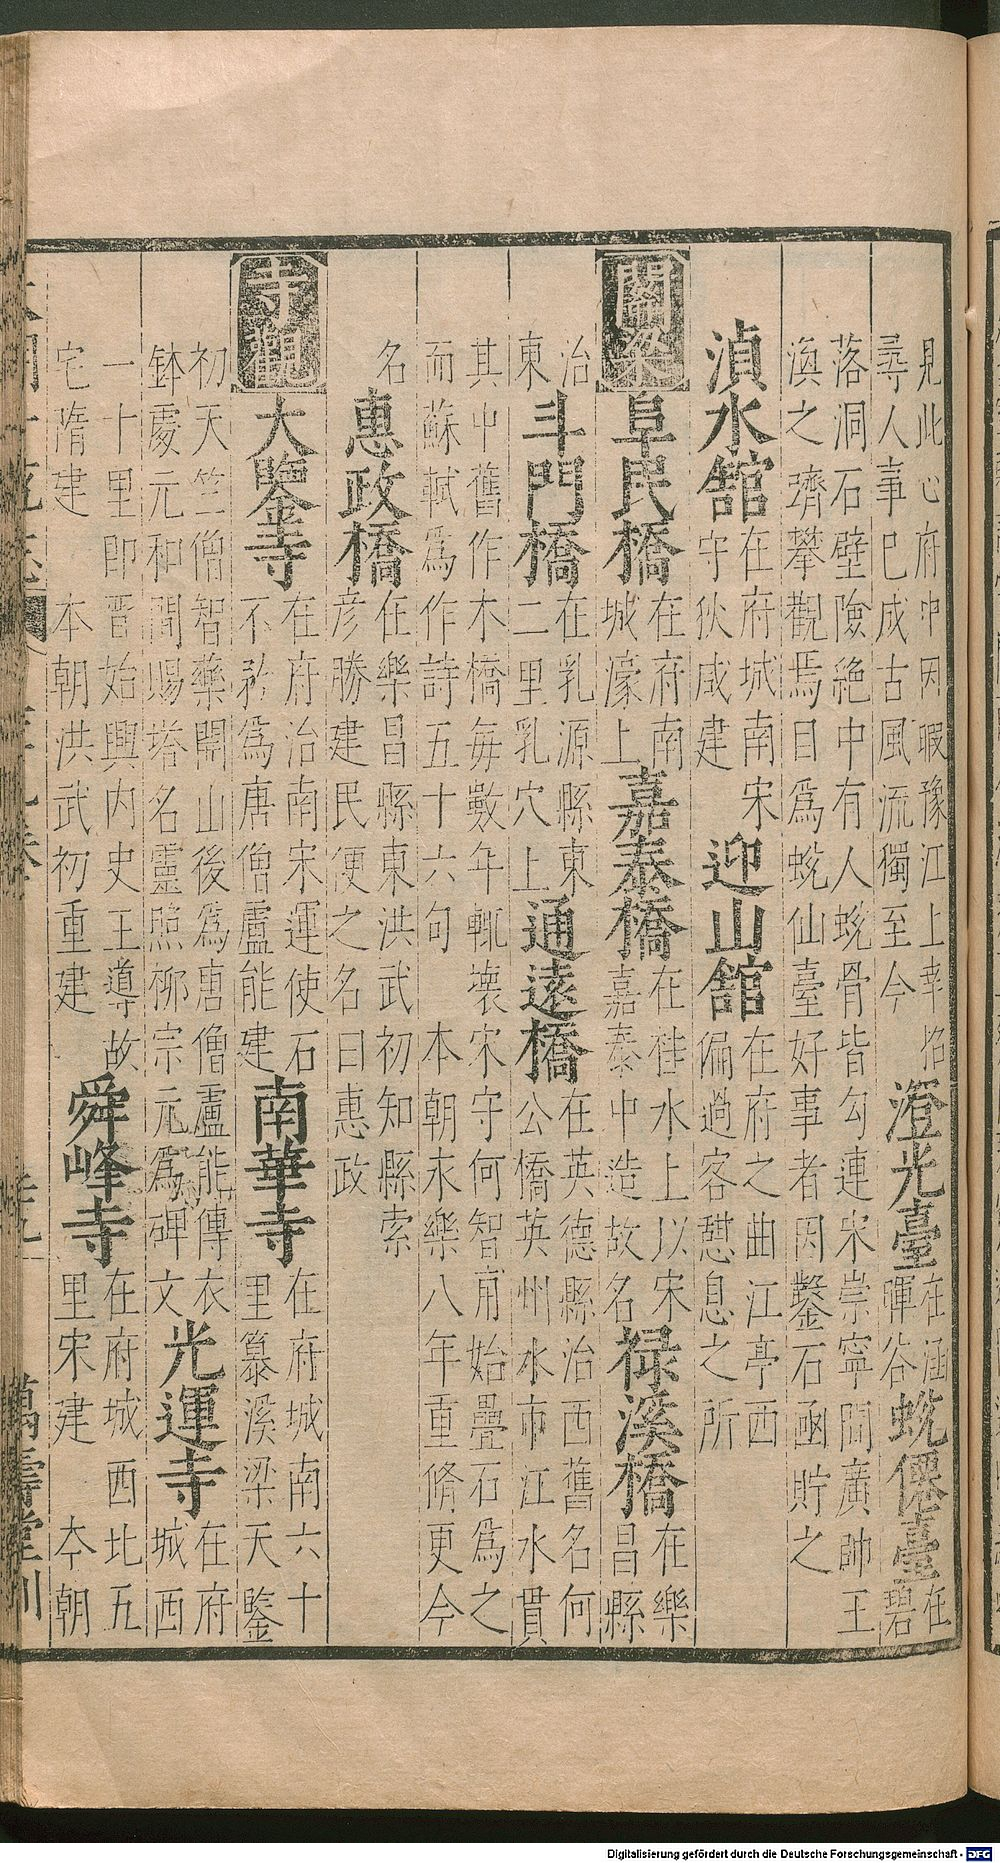 見此心府中因暇豫江上幸陷
尋人事已成古風流獨至今
澄光臺
在涵
暉谷
蛻僊臺
在
碧
落洞石壁險絶中有人蛻骨皆勾連宋崇寧間廣帥王
渙之躋攀觀焉目爲蛻仙臺好事者因鑿石函貯之
湞水舘
在府城南宋
守狄咸建
迎山舘
在府之曲江亭西
偏過客憇息之所
關梁
阜民橋
在府南
城濠上
嘉泰橋
在桂水上以宋
嘉泰中造故名
禄溪橋
在樂
昌縣
治
東
斗門橋
在乳源縣東
二里乳穴上
通遠橋
在英德縣治西舊名何
公橋英州水市江水貫
其中舊作木橋毎數年輙壞宋守何智甫始疊石爲之
而蘇軾爲作詩五十六句 本朝永樂八年重脩更今
名
惠政橋
在樂昌縣東洪武初知縣索
彦勝建民便之名曰惠政
寺觀
大鑒寺
在府治南宋運使石
不矜爲唐僧盧能建
南華寺
在府城南六十
里纂溪梁天鑒
初天竺僧智藥開山後爲唐僧盧能傳衣
鉢處元和間賜塔名靈照栁宗元爲碑文
光運寺
在府
城西
一十里即晋始興内史王導故
宅隋建 本朝洪武初重建
舜峰寺
在府城西北五
里宋建 夲朝
萬壽堂刊
Digitalisierung gefördert durch die Deutsche Forschungsgemeinschaft - DFG